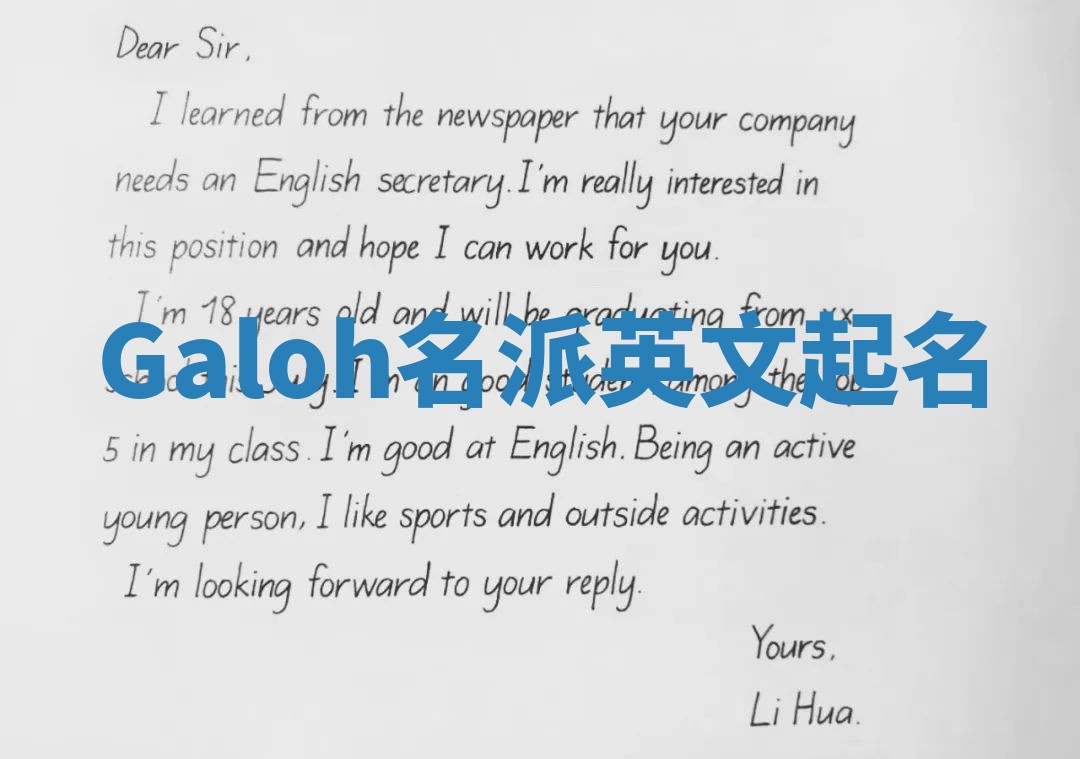 Dear Sir,
I learned from the newspaper that your company
needs an English secretary. I'm really interested in
this position and hope I can work for you.
I'm 18 years old and will be graduating from xx
Galoh名派英文起名
I'm an good student among the top
5 in my class. I'm good at English. Being an active
young person, I like sports and outside activities.
I'm looking forward to your reply.
Yours,
Li Hua.